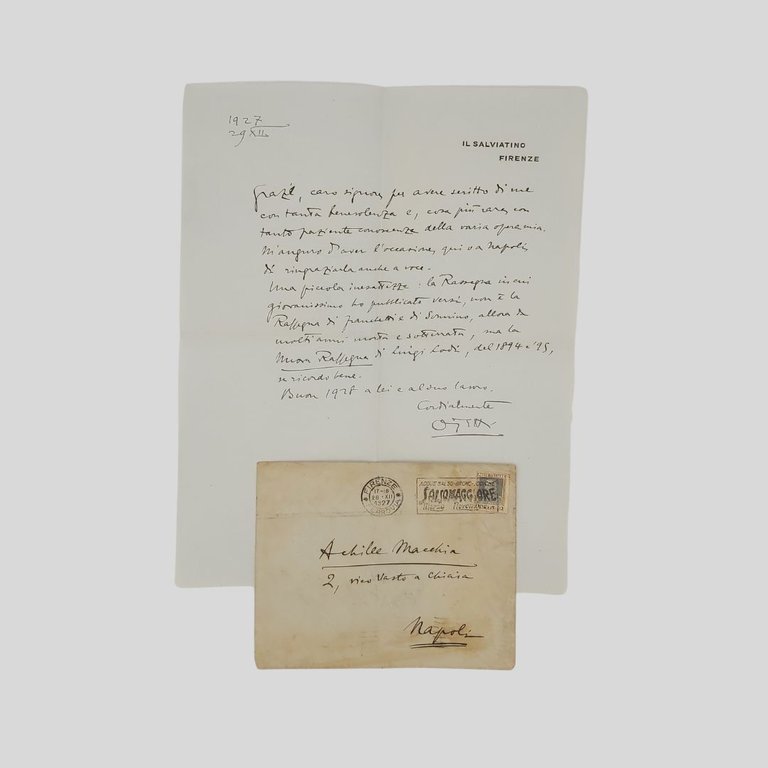 1927
29 XII
IL SALVIATINO
FIRENZE
Grazie, caro signore, per avere scritto di me
con tanta benevolenza e, cosa più rara, con
tanto paziente conoscenza della varia opera mia.
M'auguro d'aver l'occasione, qui o a Napoli,
di ringraziarla anche a voce.
Una piccola inesattezza: la Rassegna in cui
giovanissimo ho pubblicato versi, non è la
Rassegna di e di, allora da
molti anni morta e sotterrata, ma la
Nuova Rassegna di Luigi Lodi, del 1894 e '95,
se ricordo bene.
Buon 1928 a lei e al suo lavoro.
Cordialmente
Ojetti
FIRENZE
1927
FERROVIA
SALSOMAGGIORE
Achille Macchia
2, vico Vasto a Chiaia
Napoli